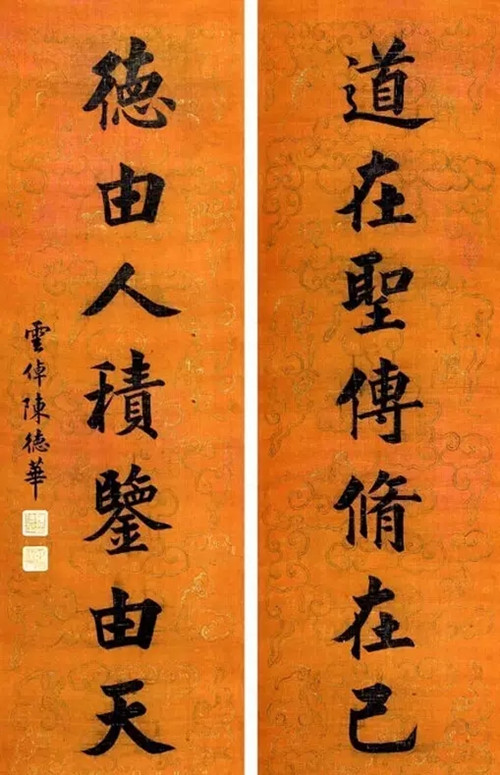 道在聖傳脩在己
德由人積鑒由天
雲倬陳德華